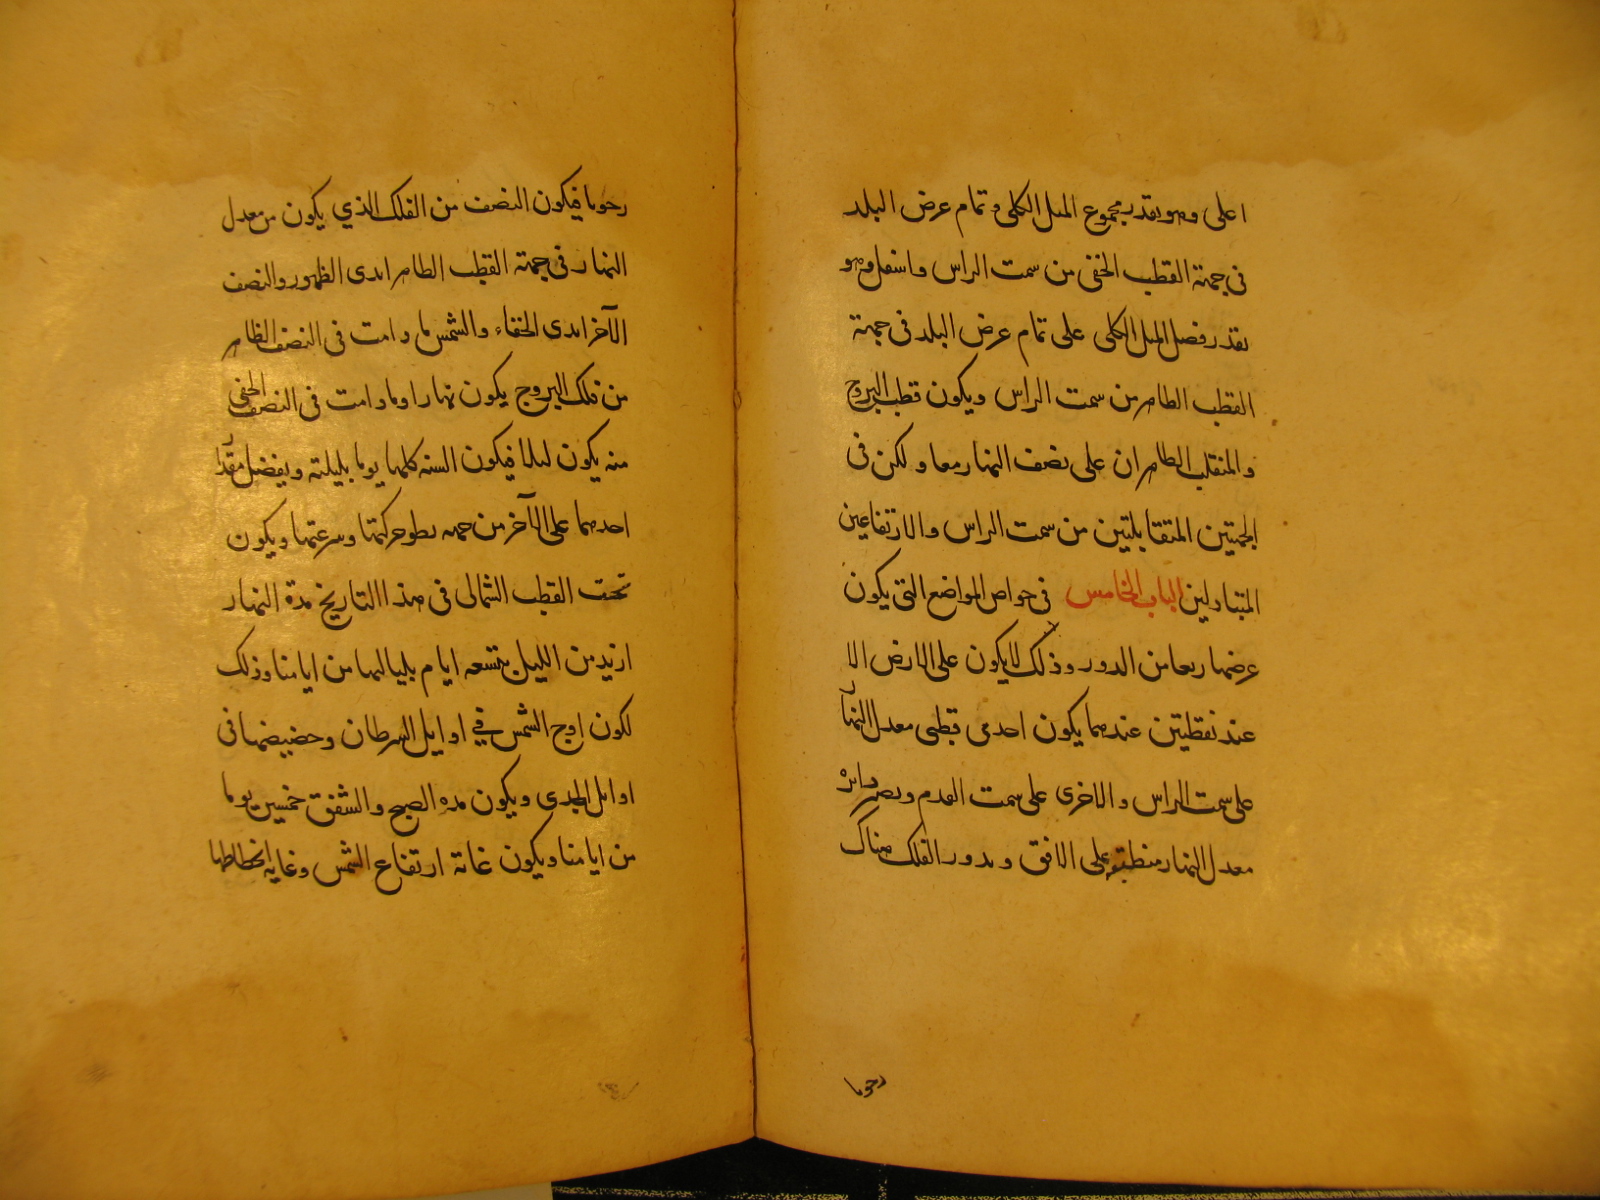 اعلى وهو بقدر مجموع الميل الكلى وتمام عرض البلد
فى جهة القطب الخفى من سمت الراس واسفل وهو
بقدر فضل الميل الكلى على تمام عرض البلد فى جهة
القطب الظاهر من سمت الراس ويكون قطب البروج
والمنقلب الظاهران على نصف النهار معا ولكن فى
الجهتين المتقابلتين من سمت الراس والارتفاعين
المتبادلين الباب الخامس فى خواص المواضع التى يكون
عرضها ربعا من الدور وذلك لا يكون على الارض الا
عند نقطتين عندهما يكون احدى قطبى معدل النهار
على سمت الراس والاخرى على سمت القدم ويصير دائرة
معدل النهار منطبقة على الافق ويدور الفلك هناك
رحويا
رحويا فيكون النصف من الفلك الذي يكون من معدل
النهار فى جهة القطب الظاهر ابدى الظهور والنصف
الآخر ابدى الخفاء والشمس ما دامت فى النصف الظاهر
من فلك البروج يكون نهارا وما دامت فى النصف الخفى
منه يكون ليلا فيكون السنة كلها يوما بليلته ويفضل مقدار
احدهما على الآخر من جهة بطو حركتها وسرعتها ويكون
تحت القطب الشمالى فى هذا التاريخ مدة النهار
ازيد من الليل بتسعة ايام بلياليها من ايامنا وذلك
لكون اوج الشمس في اوايل السرطان وحضيضها فى
اوايل الجدى ويكون مدة الصبح والشفق خمسين يوما
من ايامنا ويكون غاية ارتفاع الشمس وغاية انحطاطها